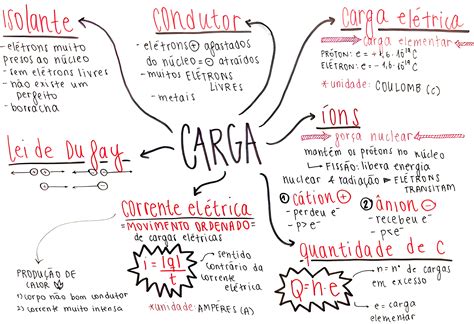 isolante
- elétrons muito
presos ao núcleo
- sem elétrons livres
- não existe um
perfeito
- borracha
condutor
- elétrons + afastados
do núcleo = - atraídos
- muitos ELÉTRONS
LIVRES
- metais
carga elétrica
carga elementar
PRÓTON: e = +1,6.10⁻¹⁹ C
ELÉTRON: e = -1,6.10⁻¹⁹ C
*unidade: COULOMB (C)
CARGA
íons
força nuclear
mantém os prótons no núcleo
↳ FISSÃO: libera energia
nuclear e radiação → ELÉTRONS
TRANSITAM
1 cátion +
- perdeu e⁻
- p>e⁻
2 ânion -
- recebeu e⁻
- p<e⁻
lei de Du fay
corrente elétrica
= MOVIMENTO ORDENADO
de cargas elétricas
i = |q|
t
→ sentido
contrário da
corrente
elétrica
*unidade: AMPÉRES (A)
PRODUÇÃO DE
CALOR
1) corpo não bom condutor
2) corrente muito intensa
quantidade de C
Q = n.e
n = nº de cargas
em excesso
e = carga
elementar